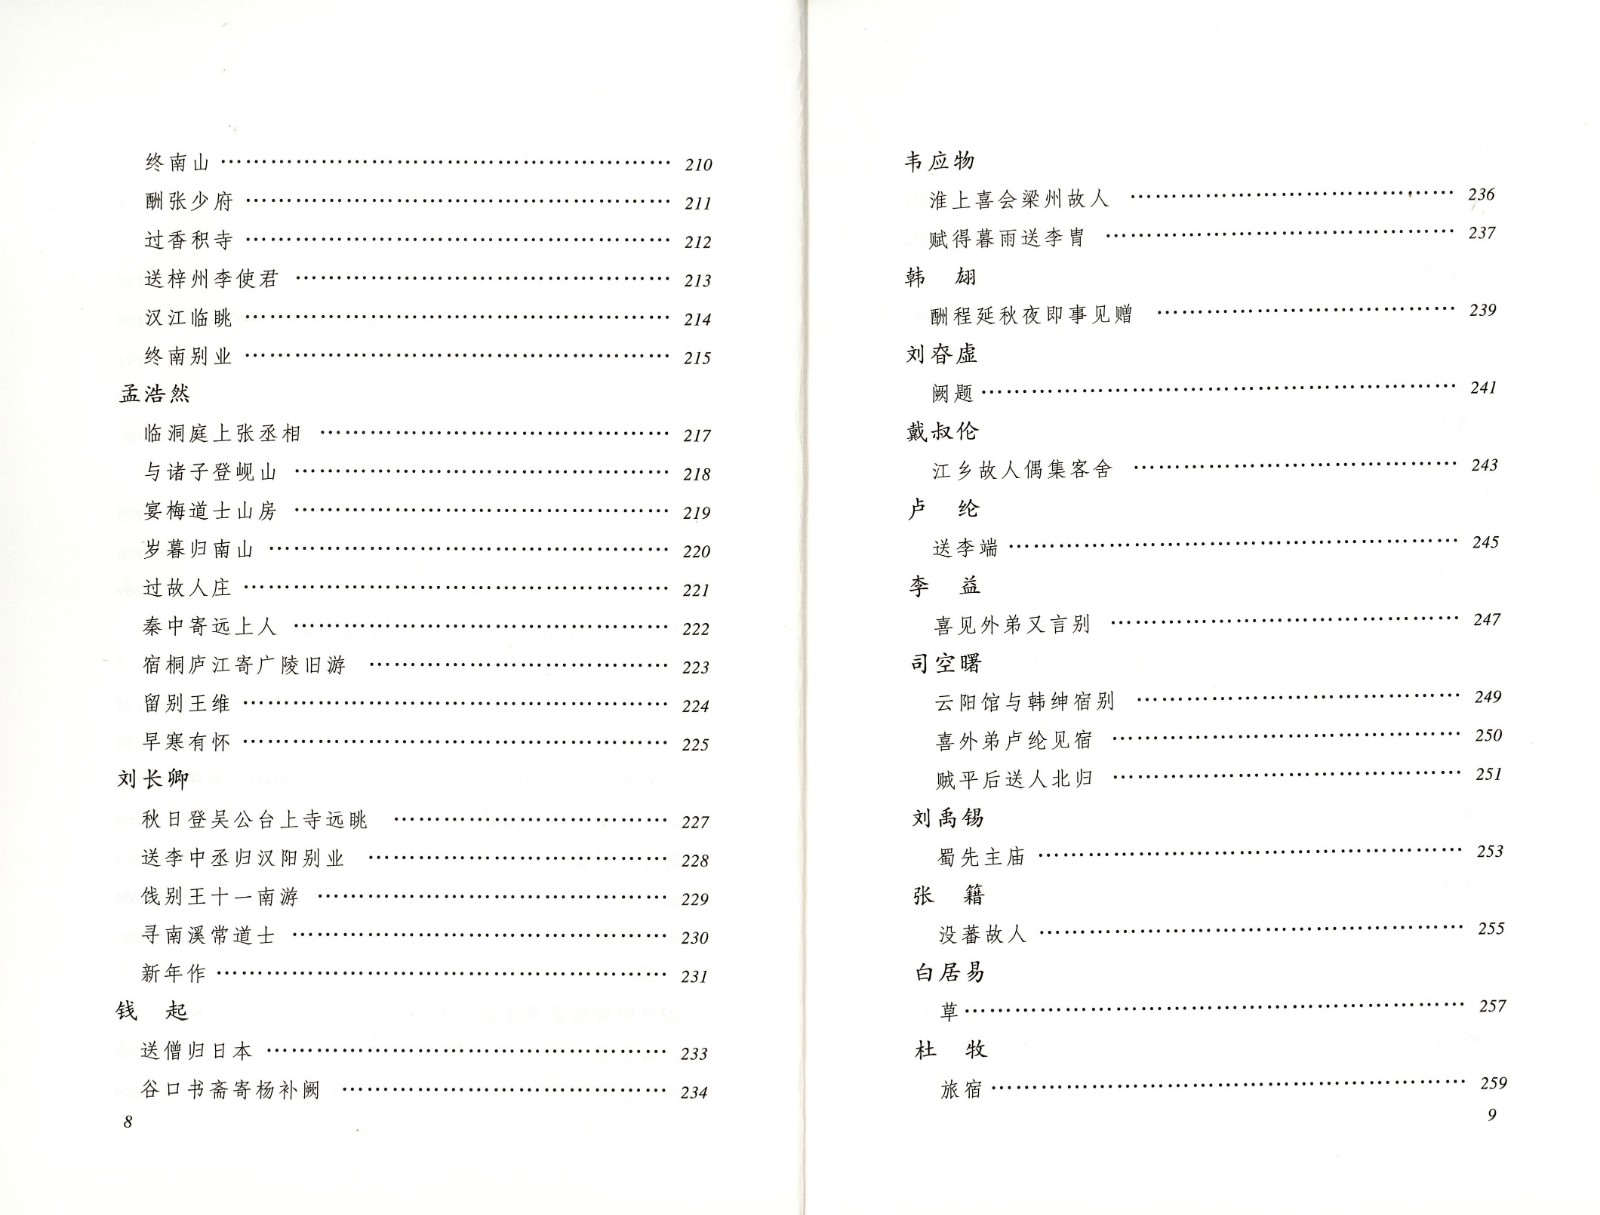 终南山 ………………………………………… 210
酬张少府 ……………………………………… 211
过香积寺 ……………………………………… 212
送梓州李使君 ………………………………… 213
汉江临眺 ……………………………………… 214
终南别业 ……………………………………… 215
孟浩然
临洞庭上张丞相 ……………………………… 217
与诸子登岘山 ………………………………… 218
宴梅道士山房 ………………………………… 219
岁暮归南山 …………………………………… 220
过故人庄 ……………………………………… 221
秦中寄远上人 ………………………………… 222
宿桐庐江寄广陵旧游 ………………………… 223
留别王维 ……………………………………… 224
早寒有怀 ……………………………………… 225
刘长卿
秋日登吴公台上寺远眺 ……………………… 227
送李中丞归汉阳别业 ………………………… 228
饯别王十一南游 ……………………………… 229
寻南溪常道士 ………………………………… 230
新年作 ………………………………………… 231
钱 起
送僧归日本 …………………………………… 233
谷口书斋寄杨补阙 …………………………… 234
8
韦应物
淮上喜会梁州故人 …………………………… 236
赋得暮雨送李胄 ……………………………… 237
韩 翃
酬程延秋夜即事见赠 ………………………… 239
刘昚虚
阙题 …………………………………………… 241
戴叔伦
江乡故人偶集客舍 …………………………… 243
卢 纶
送李端 ………………………………………… 245
李 益
喜见外弟又言别 ……………………………… 247
司空曙
云阳馆与韩绅宿别 …………………………… 249
喜外弟卢纶见宿 ……………………………… 250
贼平后送人北归 ……………………………… 251
刘禹锡
蜀先主庙 ……………………………………… 253
张 籍
没蕃故人 ……………………………………… 255
白居易
草 ……………………………………………… 257
杜 牧
旅宿 …………………………………………… 259
9